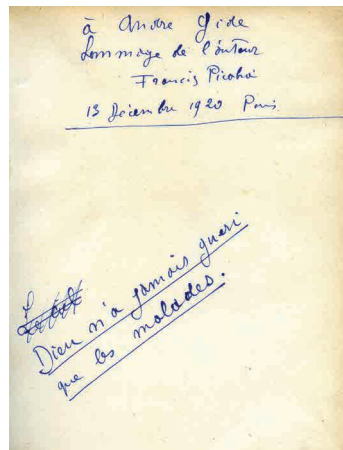 à André Gide
hommage de l'auteur
Francis Picabia
13 Décembre 1920 Paris
Dieu n'a jamais guéri
que les malades.